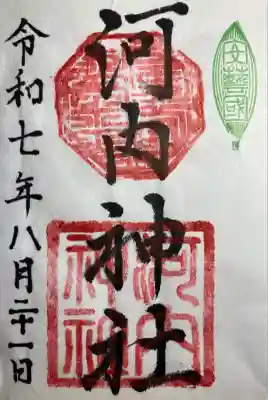 河内神社
令和七年八月二十一日
河内
神社